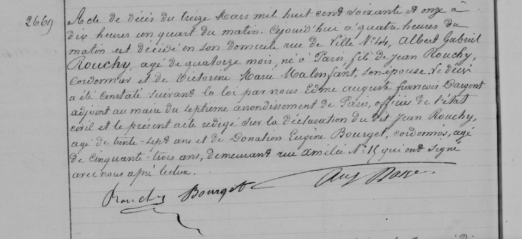 2669
Acte de décès du treize Mars mil huit cent soixante et onze à
dix heures un quart du matin. Aujourd'hui à quatre heures du
matin est décédé en son domicile rue de Ville Nº 14, Albert Gabriel
Rouchy, agé de quatorze mois, né à Paris, fils de Jean Rouchy,
Cordonnier et de Victorine Marie Malenfant, son épouse. Le décès
a été Constaté suivant la loi par nous Edme Auguste François
adjoint au maire du septième arrondissement de Paris, officier de l'état
civil et le présent acte redigé sur la déclaration du dit Jean Rouchy,
agé de trente-sept ans et de Donation Eugène Bourget, cordonnier, agé
de Cinquante-trois ans, demeurant rue Amélie Nº 15 qui ont signé
avec nous après lecture.
Rouchy Bourget